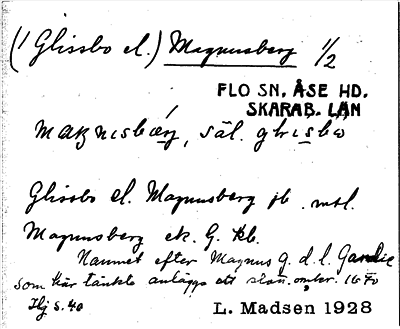 (1 Glissbo el.) Magnusberg 1/2
FLO SN. ÅSE HD.
SKARAB. LÄN
säl. glisbo
Glissbo el. Magnusberg jb. mtl.
Magnusberg ek. G. kb.
Namnet efter Magnus G. d. l. Gardie
som här tänkte anlägga ett slott omkr. 1670
Hj s. 40
L. Madsen 1928